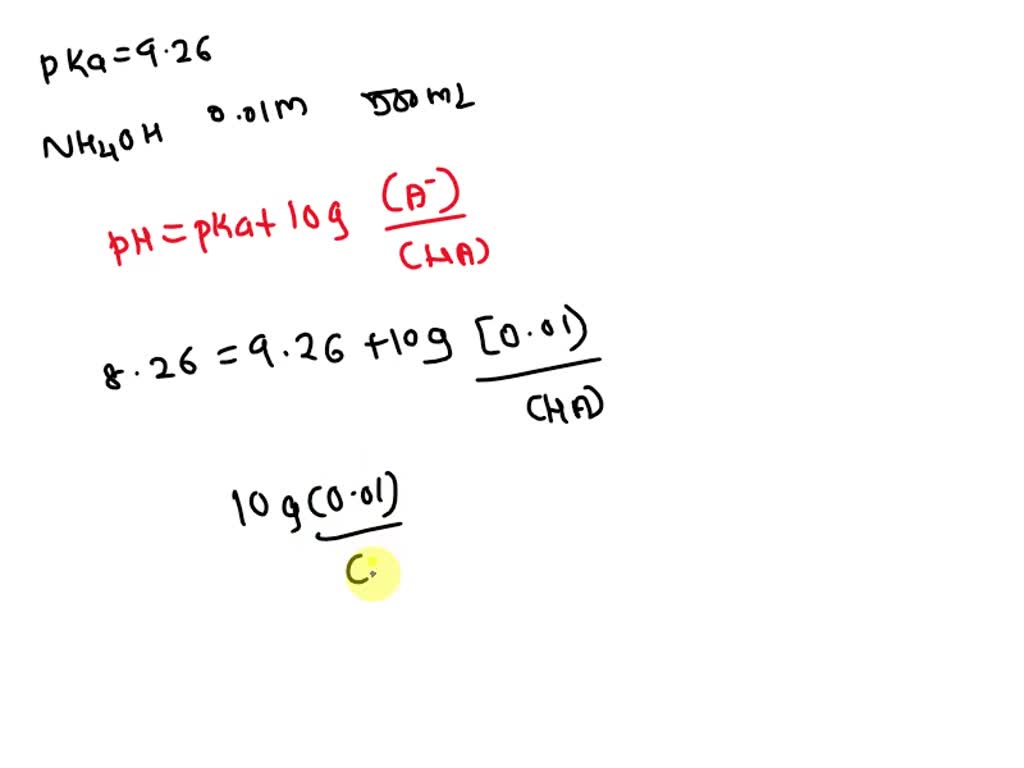 pKa = 9.26
NH4OH 0.01M 500 mL
pH = pKa + log (A⁻)
(HA)
8.26 = 9.26 + log [0.01)
(HA)
log (0.01)
C